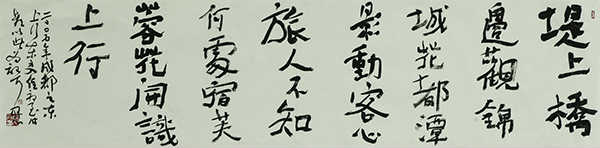 堤上橋
邊觀錦
城花都潭
影動客心
旅人不知
何處宿芙
蓉花開識
上行
年成都